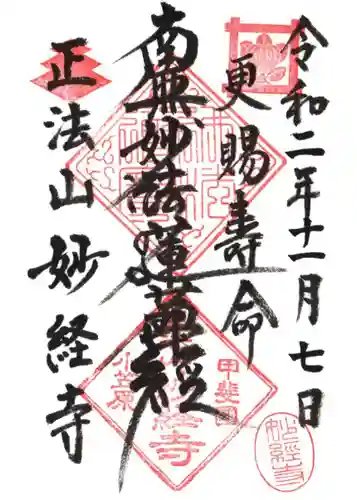 令和二年十一月七日
更賜寿命
南無妙法蓮華経
正法山妙経寺
甲斐国
小笠原
妙経寺
妙經寺